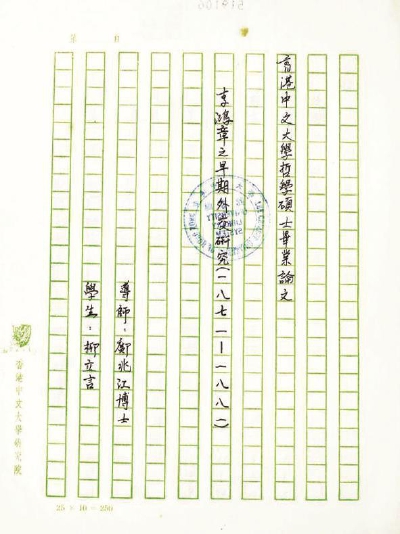 香港中文大學哲學碩士畢業論文
李鴻章之早期外交研究(一八七一—一八八二)
導師:鄺兆江博士
學生:柳立言
香港中文大學研究院
25 × 10 = 250